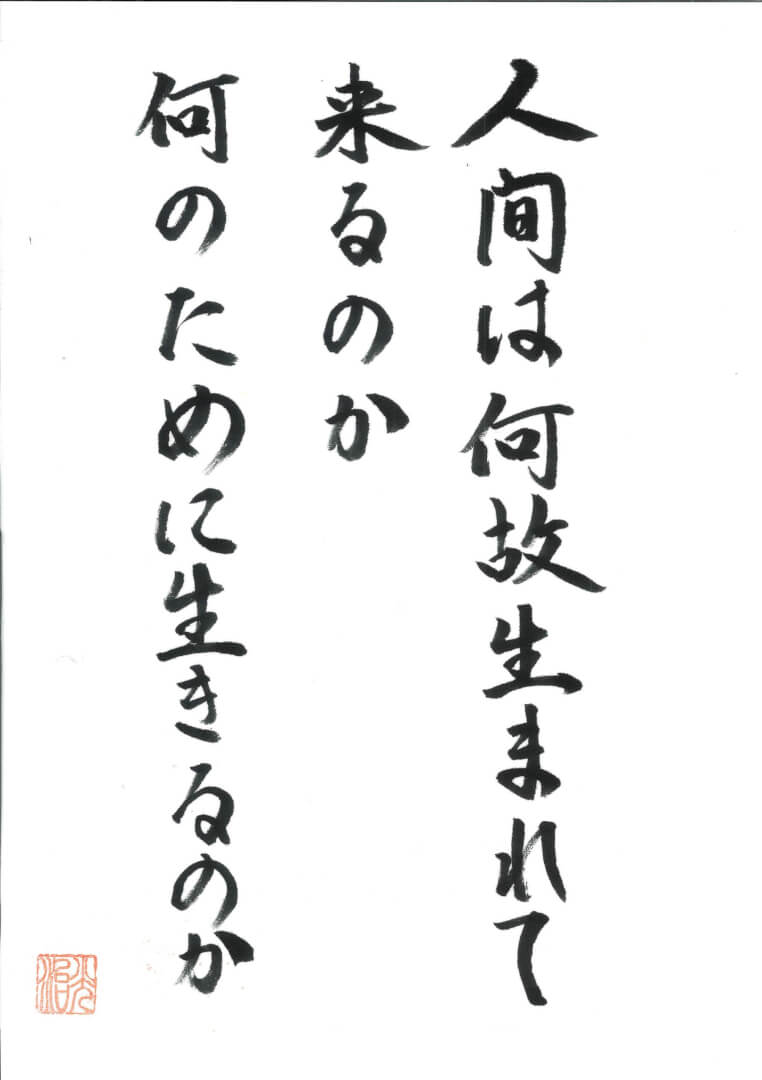 人間は何故生まれて
来るのか
何のために生きるのか